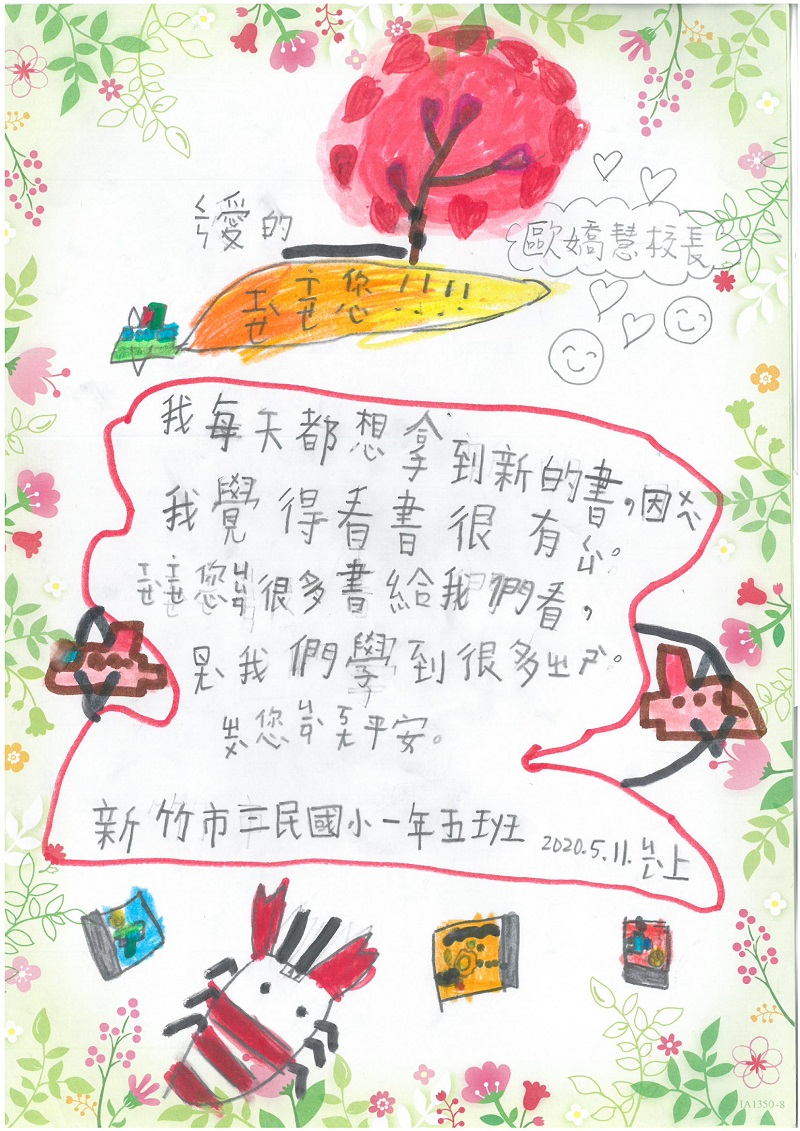 ㄑㄧㄣ愛的
歐嬌慧校長
ㄒㄧㄝˋㄒㄧㄝ˙您!!!!
我每天都想拿到新的書,因ㄨㄟˋ
我覺得看書很有。
ㄒㄧㄝˋㄒㄧㄝ˙您ㄐㄩㄢ很多書給我們看,
我們學到很多ㄓㄕˋ。
ㄓㄨˋ您ㄐㄧㄢˋㄎㄤ平安。
新竹市三民國小一年五班 2020.5.11.上
IA1350-8